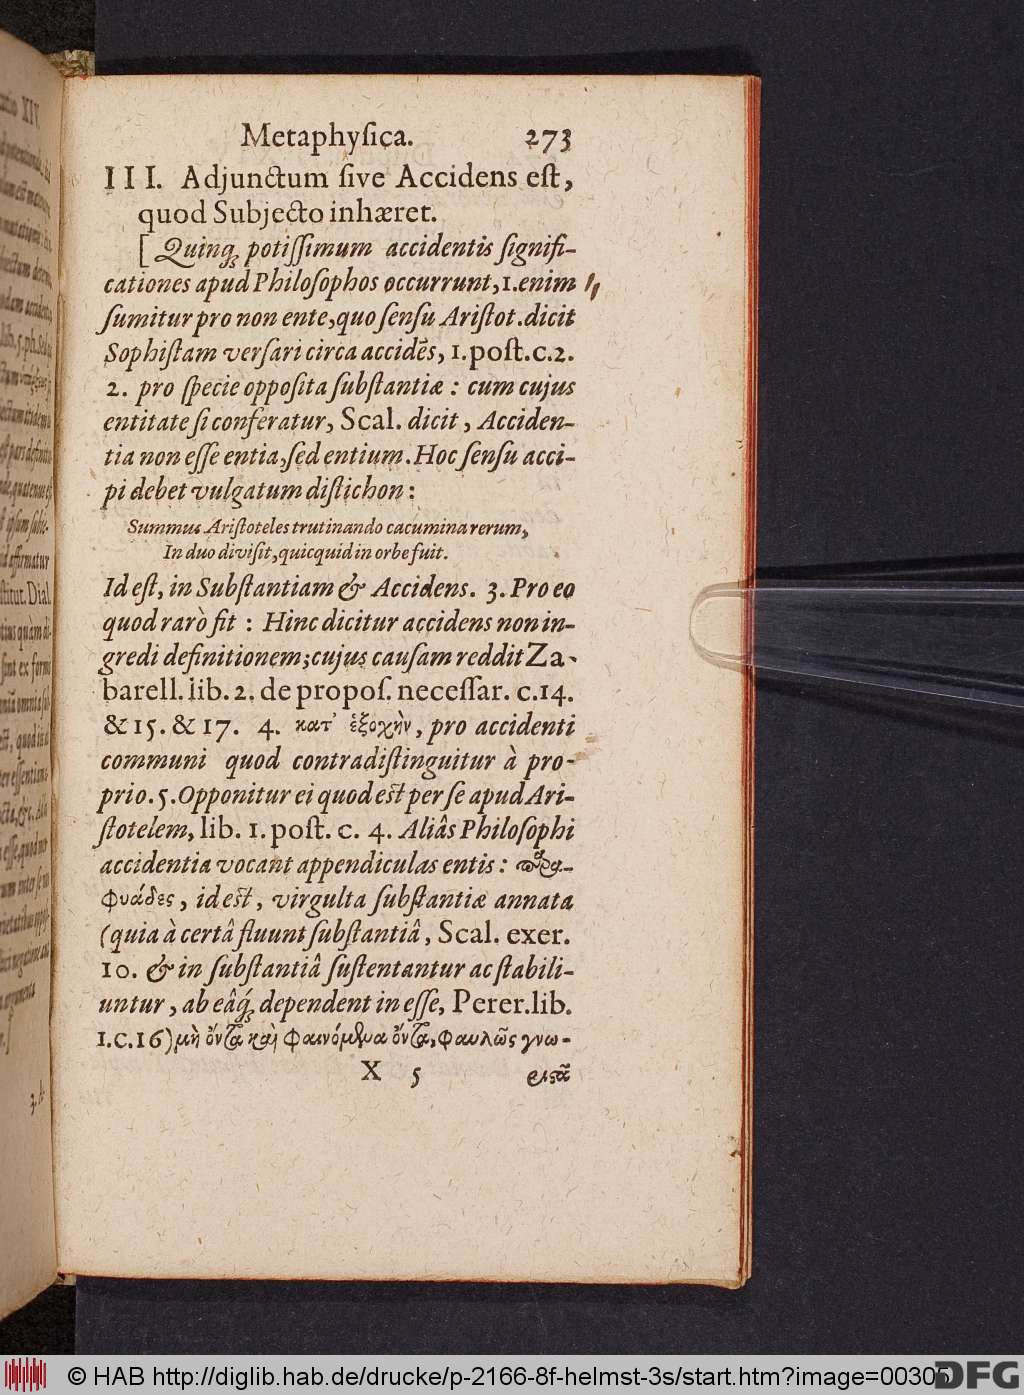 Metaphyſica. 273
III. Adjunctum ſive Accidens eſt,
quod Subjecto inhæret.
[ Quinq; potiſſimum accidentis ſignifi-
cationes apud Philoſophos occurrunt, 1. enim
ſumitur pro non ente, quo ſenſu Ariſtot. dicit
Sophiſtam verſari circa accidẽs, 1. poſt. c. 2.
2. pro ſpecie oppoſita ſubſtantiæ : cum cujus
entitate ſi conferatur, Scal. dicit, Acciden-
tia non eſſe entia, ſed entium. Hoc ſenſu acci-
pi debet vulgatum diſtichon :
Summus Ariſtoteles trutinando cacumina rerum,
In duo diviſit, quicquid in orbe fuit.
Id eſt, in Subſtantiam & Accidens. 3. Pro eo
quod rarò fit : Hinc dicitur accidens non in-
gredi definitionem; cujus cauſam reddit Za-
barell. lib. 2. de propoſ. neceſſar. c. 14.
& 15. & 17. 4. κατ' ἐξοχὴν, pro accidenti
communi quod contradiſtinguitur à pro-
prio. 5. Opponitur ei quod eſt per ſe apud Ari-
ſtotelem, lib. 1. poſt. c. 4. Aliâs Philoſophi
accidentia vocant appendiculas entis : παρα-
φυάδες, id eſt, virgulta ſubſtantiæ annata
(quia à certâ fluunt ſubſtantiâ, Scal. exer.
10. & in ſubſtantiâ ſuſtentantur ac ſtabili-
untur, ab eâq́; dependent in eſſe, Perer. lib.
1. c. 16) μὴ ὄντα καὶ φαινόμενα ὄντα, φαυλῶς γνω-
X 5
© HAB http://diglib.hab.de/drucke/p-2166-8f-helmst-3s/start.htm?image=00305
DFG